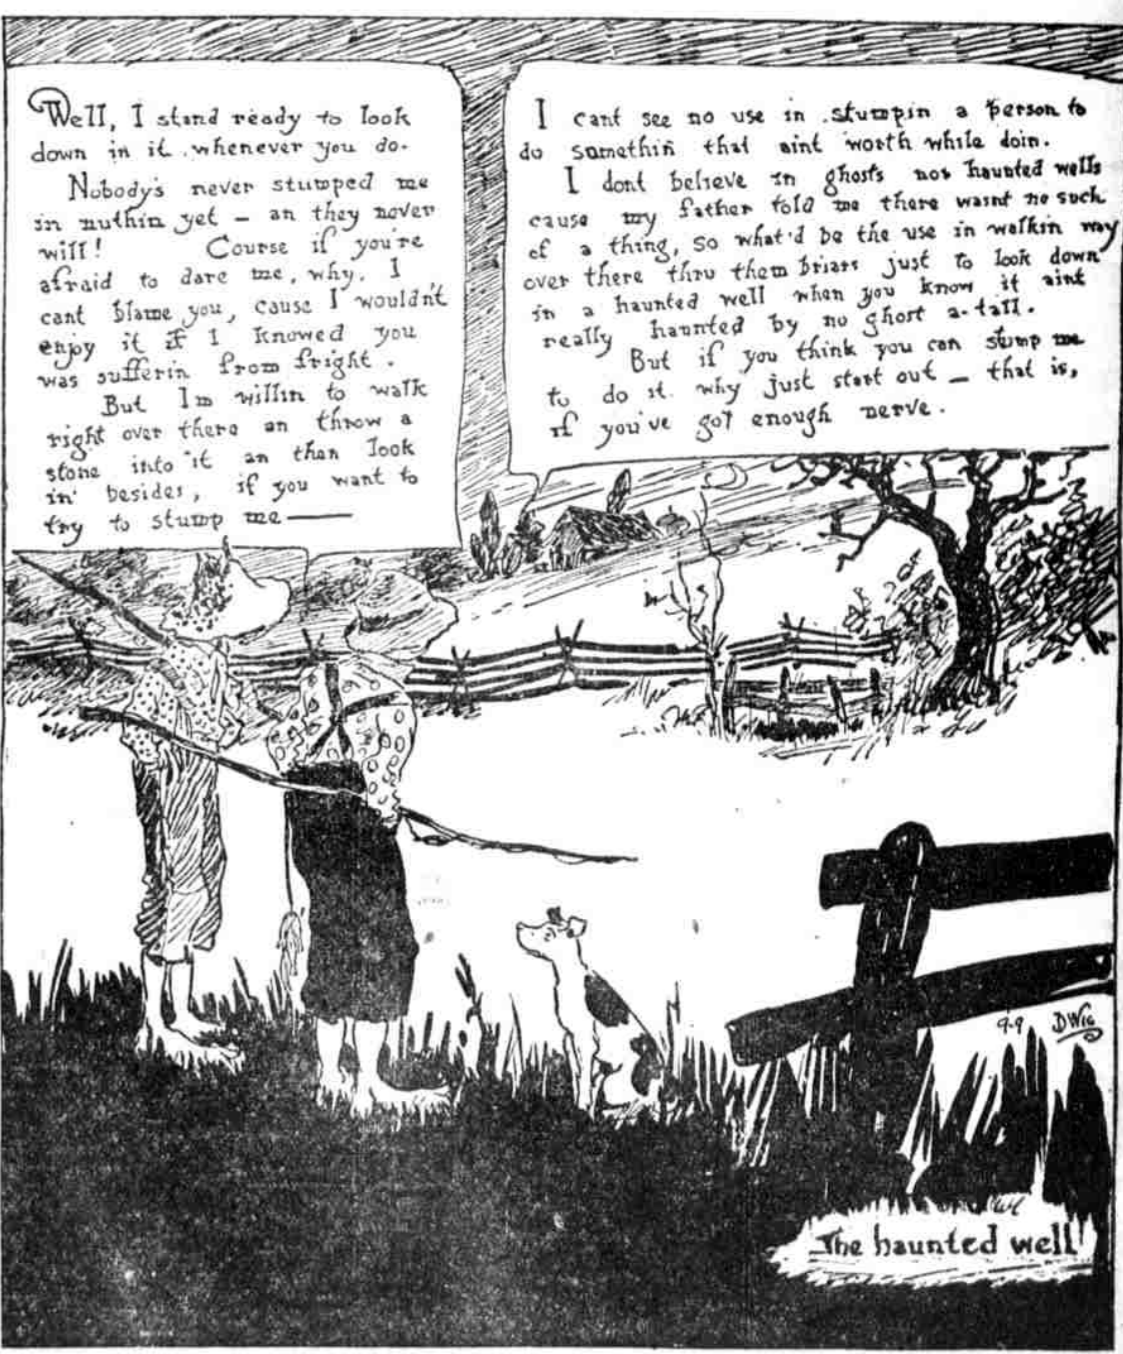 Well, I stand ready to look
down in it whenever you do.
Nobody's never stumped me
in nuthin yet – an they never
will! Course if you're
afraid to dare me, why, I
cant blame you, cause I wouldn't
enjoy it if I knowed you
was sufferin from fright.
But Im willin to walk
right over there an throw a
stone into it an then look
in besides, if you want to
try to stump me ——
I cant see no use in stumpin a person to
do somethin that aint worth while doin.
I dont believe in ghosts nor haunted wells
cause my father told me there wasnt no such
of a thing, so what'd be the use in walkin way
over there thru them briars just to look down
in a haunted well when you know it aint
really haunted by no ghost a-tall.
But if you think you can stump me
to do it, why just start out – that is,
if you've got enough nerve.
9-9 DWIG
The haunted well